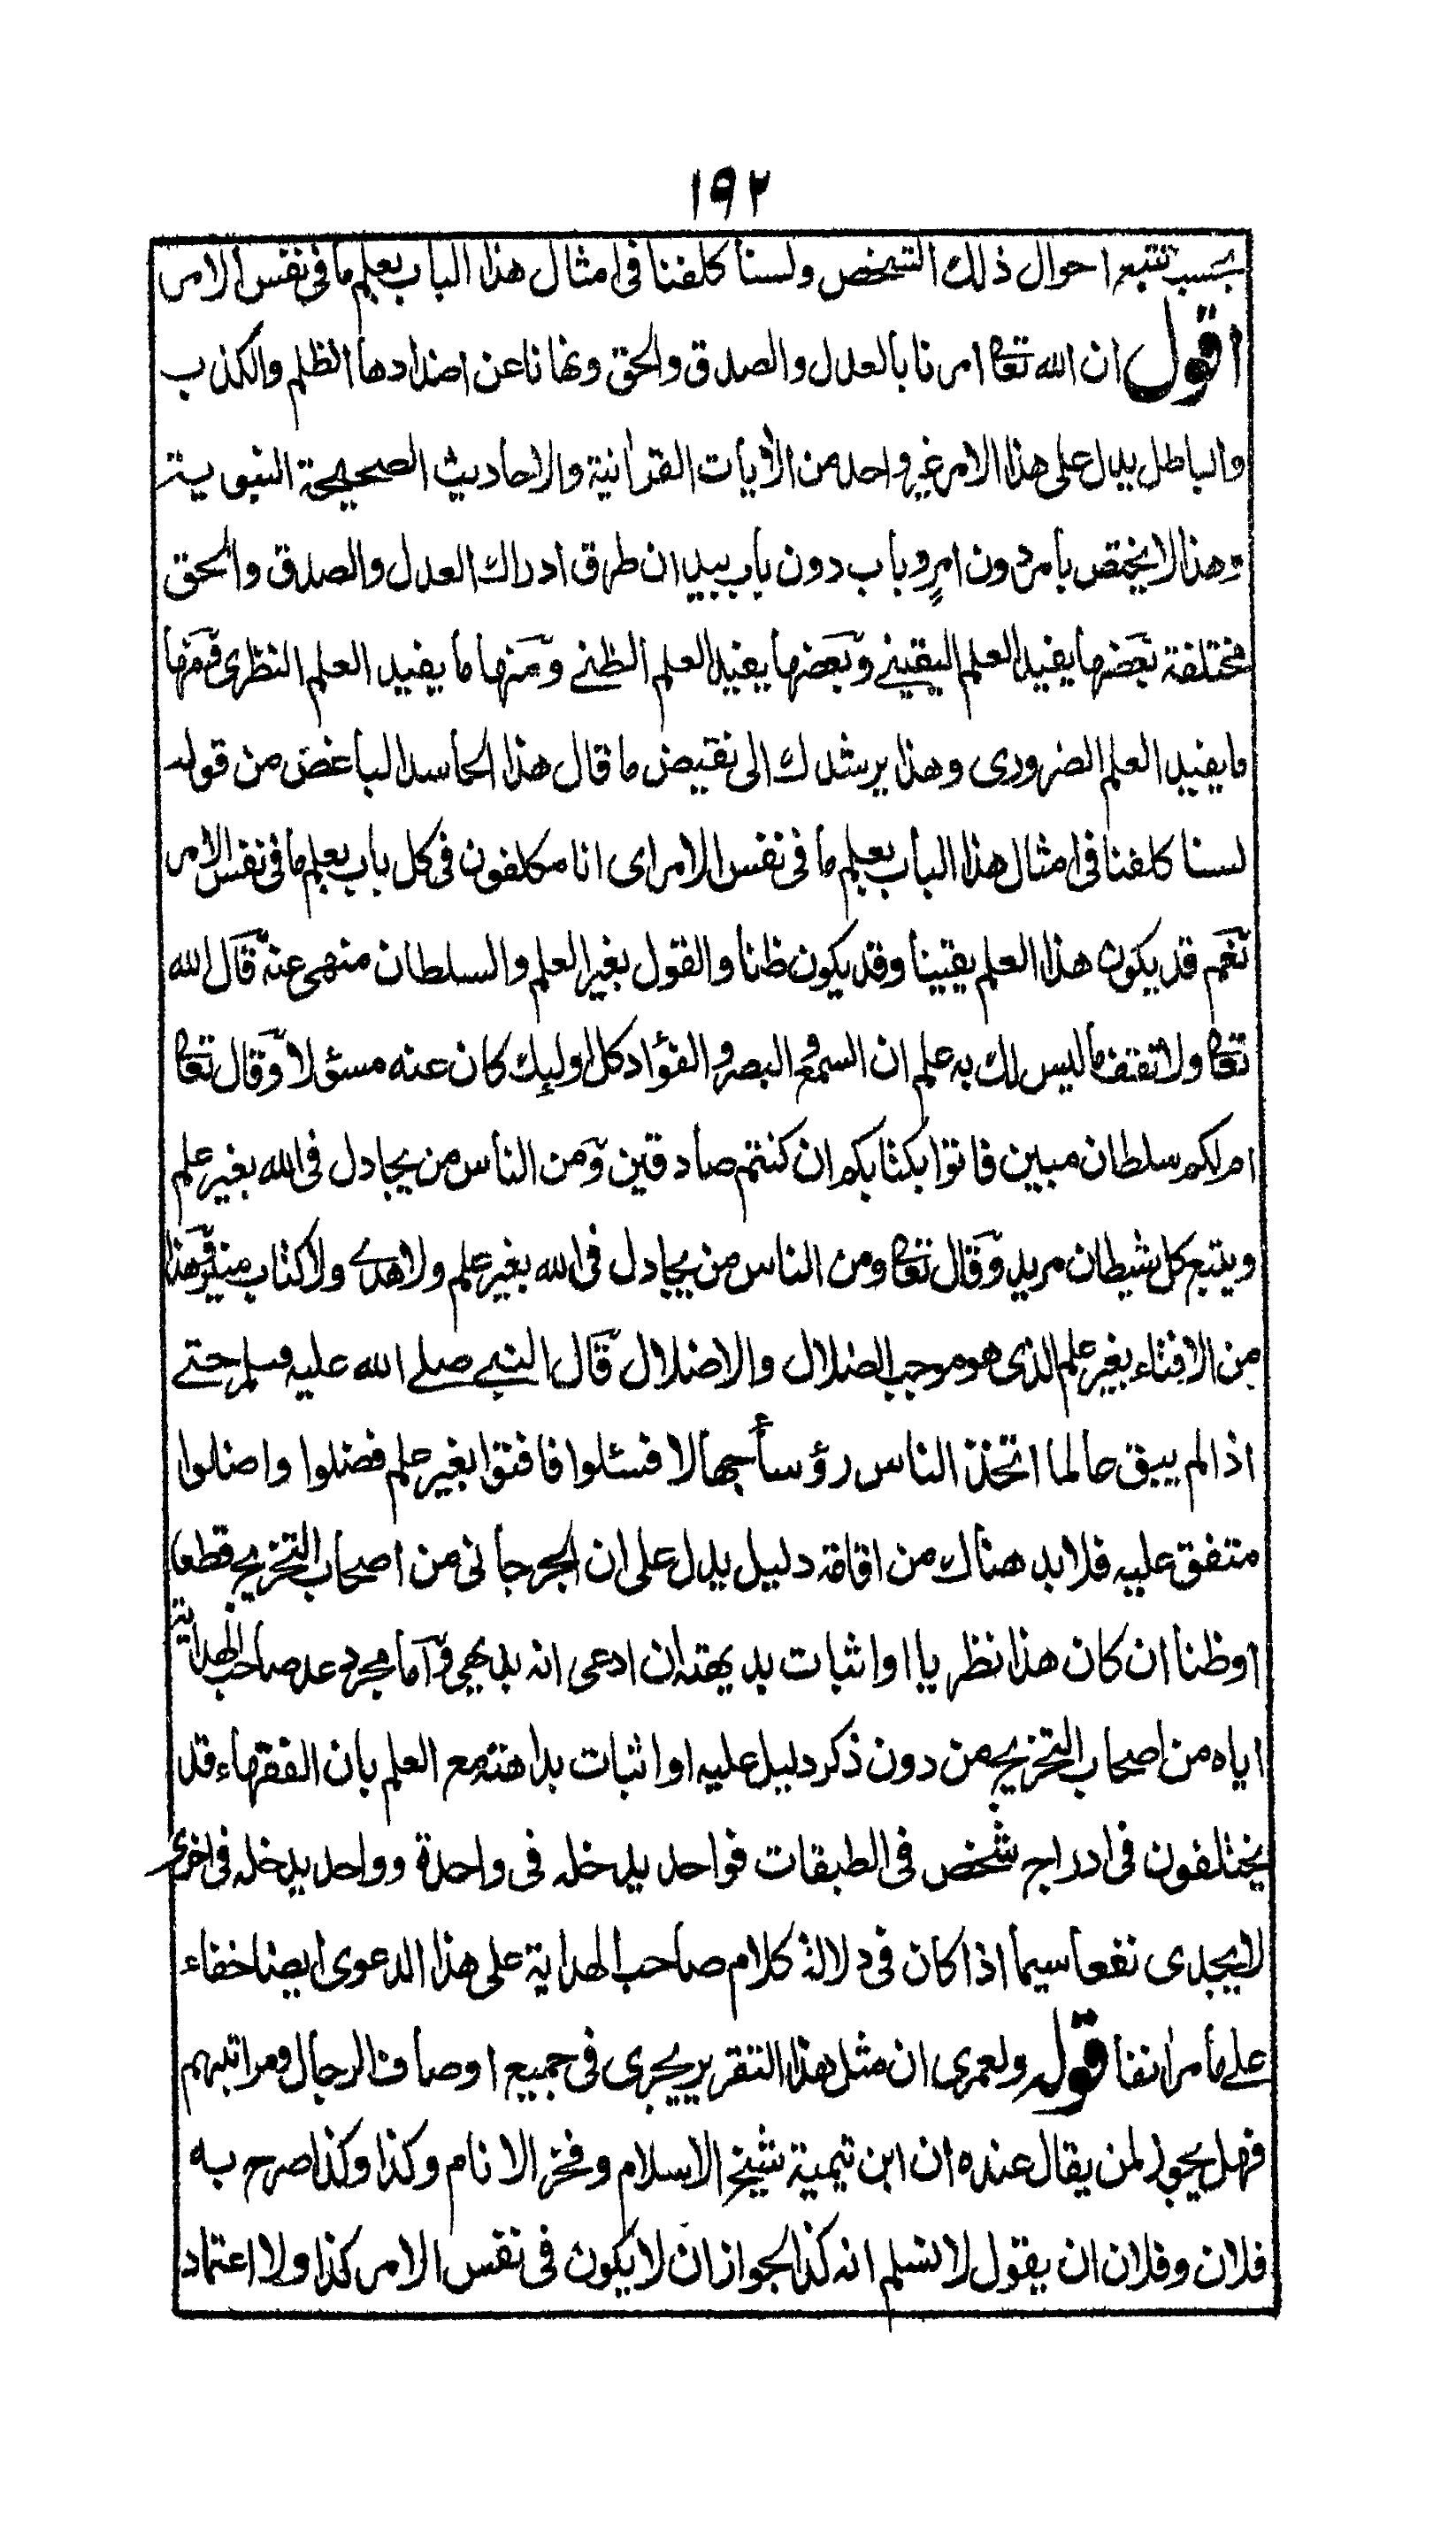 ١٩٢
بحسب تتبع احوال ذلك الشخص ولسنا كلفنا فى امثال هذا الباب بعلم ما فى نفس الامر
اقول ان الله تعا امرنا بالعدل والصدق والحق ونهانا عن اضدادها الظلم والكذب
والباطل يدل على هذا الامر غير واحد من الأيات القرانية والاحاديث الصحيحة النبوية
وهذا لا يختص بامر دون امرٍ وباب دون باب بيد ان طرق ادراك العدل والصدق والحق
مختلفة بعضها يفيد العلم اليقينے وبعضها يفيد العلم الظنے ومنها ما يفيد العلم النظرى ومنها
ما يفيد العلم الضرورى وهذا يرشدك الى نقيض ما قال هذا الحاسد الباغض من قوله
لسنا كلفنا فى امثال هذا الباب بعلم ما فى نفس الامر اى انا مكلفون فى كل باب بعلم ما فى نفس الامر
نعم قد يكون هذا العلم يقينا وقد يكون ظنا والقول بغير العلم والسلطان منهى عنه قال الله
تعا ولا تقف ما ليس لك به علم ان السمع والبصر والفؤاد كل اولٰئك كان عنه مسؤلا وقال تعا
ام لكم سلطان مبين فاتوا بكتابكم ان كنتم صادقين ومن الناس من يجادل فى الله بغير علم
ويتبع كل شيطان مريد وقال تعا ومن الناس من يجادل فى الله بغير علم ولا هدے ولا كتاب منير وهذا
من الافتاء بغير علم الذى هو موجب الضلال والاضلال قال النبے صلے الله عليه وسلم حتے
اذا لم يبق عالما اتخذ الناس رؤسأ جهالا فسئلوا فافتوا بغير علم فضلوا واضلوا
متفق عليه فلابد هناك من اقامة دليل يدل على ان الجرجانى من اصحاب التخريج قطعا
اوظنا ان كان هذا نظريا او اثبات بديهته ان ادعى انه بديهي وآما مجرد عد صاحب الهداية
اياه من اصحاب التخريج من دون ذكر دليل عليه او اثبات بداهته مع العلم بان الفقهاء قد
يختلفون فى ادراج شخص فى الطبقات فواحد يدخله فى واحدة وواحد يدخله فى اخرى
لا يجدى نفعا سيما اذا كان فى دلالة كلام صاحب الهداية على هذا الدعوى ايضا خفاء
علے ما مر انفا قوله ولعمرى ان مثل هذا التقرير يجرى فى جميع اوصاف الرجال ومراتبهم
فهل يجوز لمن يقال عنده ان ابن تيمية شيخ الاسلام وفخر الانام وكذا وكذا صرح به
فلان وفلان ان يقول لا نسلم انه كذا لجواز ان لا يكون فى نفس الامر كذا ولا اعتماد